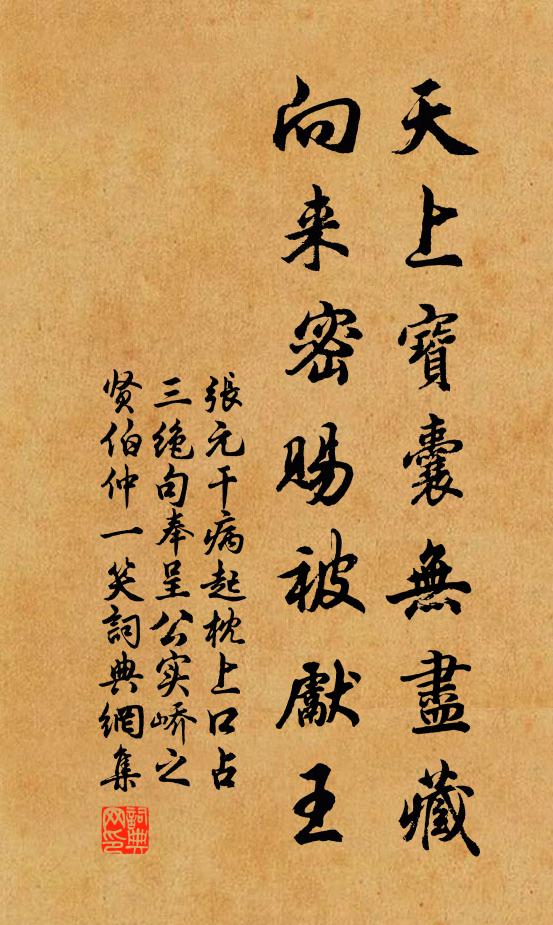 天上寶囊無盡藏
向来密賜被獻王
張元干病起枕上口占
三绝句奉呈公实峤之
贤伯仲一笑詞典網集
詞典网印